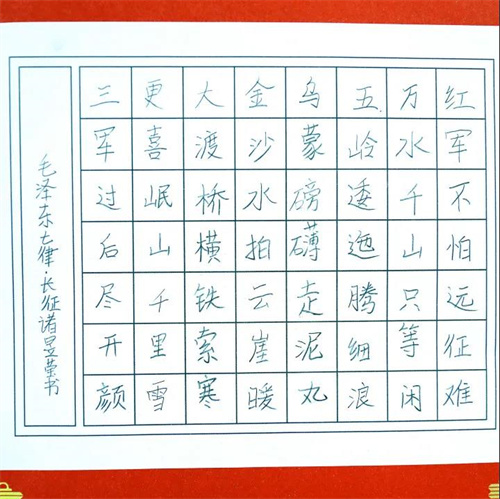 红军不怕远征难
万水千山只等闲
五岭逶迤腾细浪
乌蒙磅礴走泥丸
金沙水拍云崖暖
大渡桥横铁索寒
更喜岷山千里雪
三军过后尽开颜
毛泽东七律·长征诸昱莹书